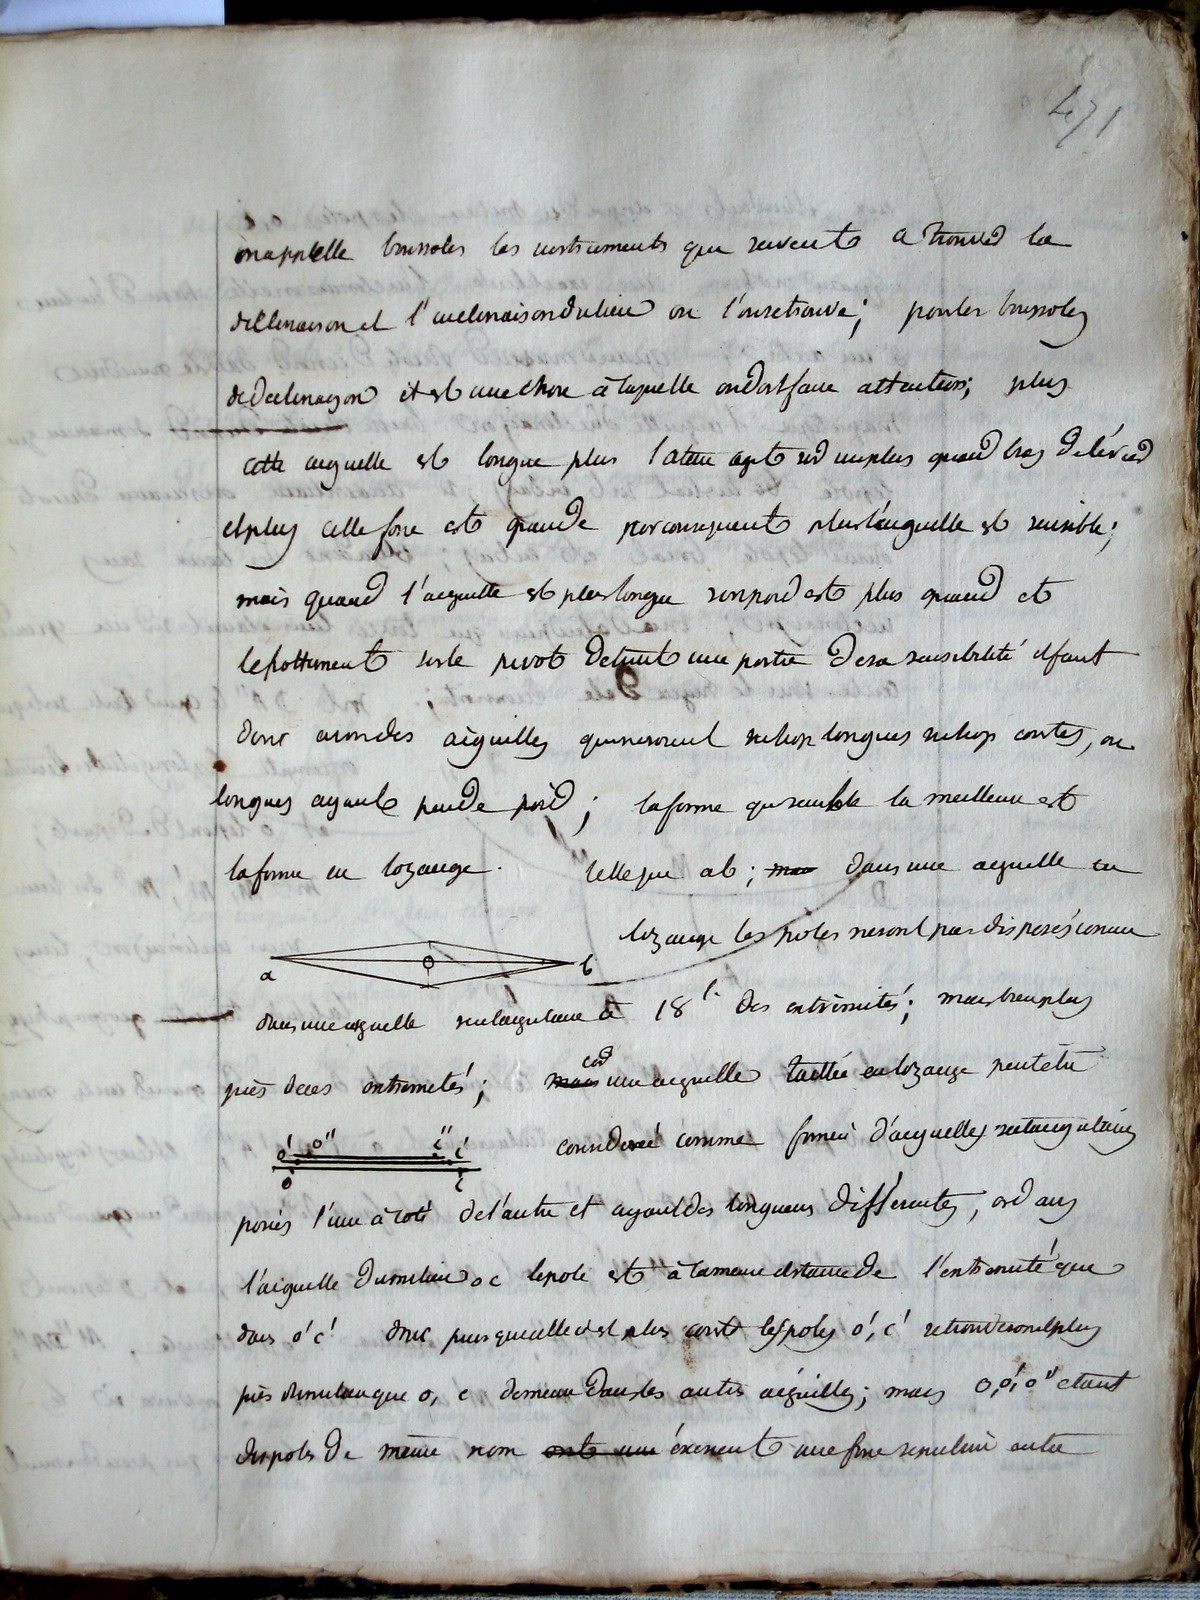 471
on appelle boussoles les instruments qui servent a trouver la
déclinaison et l'inclinaison du lieu ou l'on se trouve; pour les boussoles
de déclinaison il est une chose à laquelle on doit faire attention; plus
cette aiguille est longue plus l'aten agit sur un plus grand bras de levier
et plus cette force est grande par consequent plus l'aiguille est sensible;
mais quand l'aiguille est plus longue son poid est plus grand et
le frottement sur le pivot detruit une partie de sa sensibilité il faut
donc avoir des aiguilles qui ne soient ni trop longues ni trop courtes, ou
longues ayant peu de poid; la forme qui semble la meilleure est
la forme en lozange. telle que ab; dans une aiguille en
lozange les poles ne sont pas disposés comme
a b
dans une aiguille rectangulaire à 18 l. des extrémités; mais bien plus
près de ces extremités; car une aiguille taillée en lozange peut etre
o' o'' c'' c' considéré comme formée d'aiguilles rectangulaires
o c
posées l'une à coté de l'autre et ayant des longueurs différentes, or dans
l'aiguille du milieu oc le pole est à la meme distance de l'extremité que
dans o'c' donc puisque celle ci est plus courte les poles o', c' se trouveront plus
près du milieu que o, c de meme dans les autres aiguilles; mais o, o', o'' etant
des poles de même nom exercent une force repulsive entre